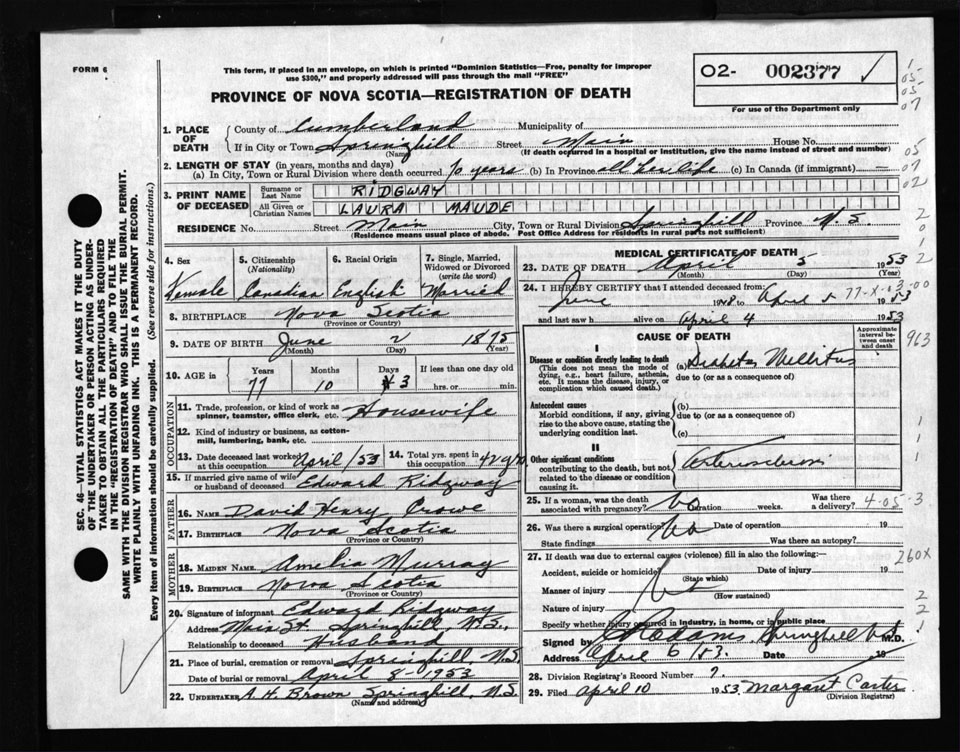 FORM 6
This form, if placed in an envelope, on which is printed "Dominion Statistics—Free, penalty for improper
use $300," and properly addressed will pass through the mail "FREE"
PROVINCE OF NOVA SCOTIA—REGISTRATION OF DEATH
O2- 002377 ✓
For use of the Department only
1. PLACE OF DEATH
County of Cumberland Municipality of
If in City or Town Springhill Street Main House No.
(Name) (If death occurred in a hospital or institution, give the name instead of street and number)
2. LENGTH OF STAY (in years, months and days)
(a) In City, Town or Rural Division where death occurred 70 years (b) In Province all her life (c) In Canada (if immigrant)
3. PRINT NAME OF DECEASED
Surname or Last Name RIDGWAY
All Given or Christian Names LAURA MAUDE
RESIDENCE No. Street Main City, Town or Rural Division Springhill Province N.S.
(Residence means usual place of abode. Post Office Address for residents in rural parts not sufficient)
SEC. 46—VITAL STATISTICS ACT MAKES IT THE DUTY
OF THE UNDERTAKER OR PERSON ACTING AS UNDER-
TAKER TO OBTAIN ALL THE PARTICULARS REQUIRED
IN THE "REGISTRATION OF DEATH" AND TO FILE THE
SAME WITH THE DIVISION REGISTRAR WHO SHALL ISSUE THE BURIAL PERMIT.
WRITE PLAINLY WITH UNFADING INK. THIS IS A PERMANENT RECORD.
Every item of information should be carefully supplied. (See reverse side for instructions.)
4. Sex
Female
5. Citizenship
(Nationality)
Canadian
6. Racial Origin
English
7. Single, Married,
Widowed or Divorced
(write the word)
Married
8. BIRTHPLACE Nova Scotia
(Province or Country)
9. DATE OF BIRTH June 2 1875
(Month) (Day) (Year)
10. AGE in Years Months Days If less than one day old
77 10 3 hrs. or min.
OCCUPATION
11. Trade, profession, or kind of work as
spinner, teamster, office clerk, etc. Housewife
12. Kind of industry or business, as cotton-
mill, lumbering, bank, etc.
13. Date deceased last worked
at this occupation April/53
14. Total yrs. spent in
this occupation 42 yrs
15. If married give name of wife
or husband of deceased Edward Ridgway
FATHER
16. NAME David Henry Crowe
17. BIRTHPLACE Nova Scotia
(Province or Country)
MOTHER
18. MAIDEN NAME Amelia Murray
19. BIRTHPLACE Nova Scotia
(Province or Country)
20. Signature of informant Edward Ridgway
Address Main St. Springhill, N.S.
Relationship to deceased Husband
21. Place of burial, cremation or removal Springhill, N.S.
Date of burial or removal April 8 - 1953
22. UNDERTAKER A.H. Brown Springhill, N.S.
(Name and address)
MEDICAL CERTIFICATE OF DEATH
23. DATE OF DEATH April 5 1953
(Month) (Day) (Year)
24. I HEREBY CERTIFY that I attended deceased from:
June 1948 to April 5 1953
77-X-03-00
and last saw h alive on April 4 1953
CAUSE OF DEATH
Approximate
interval be-
tween onset
and death
I
Disease or condition directly leading to death
(This does not mean the mode of
dying, e.g., heart failure, asthenia,
etc. It means the disease, injury, or
complication which caused death.)
(a) Diabetes Mellitus
due to (or as a consequence of)
Antecedent causes
Morbid conditions, if any, giving
rise to the above cause, stating the
underlying condition last.
(b)
due to (or as a consequence of)
(c)
II
Other significant conditions
contributing to the death, but not
related to the disease or condition
causing it.
Arteriosclerosis
25. If a woman, was the death
associated with pregnancy? No Duration weeks. Was there
a delivery? 4-05-3
26. Was there a surgical operation? No Date of operation 19
State findings Was there an autopsy?
27. If death was due to external causes (violence) fill in also the following:—
Accident, suicide or homicide? Date of injury 19
(State which)
Manner of injury No
(How sustained)
Nature of injury
Specify whether injury occurred in Industry, in home, or in public place
Signed by Adams, Springhill M.D.
Address April 6/53. Date 19
28. Division Registrar's Record Number 7.
29. Filed April 10 1953 Margaret Carter
(Division Registrar)
1
05-
05-
07
05
07
02
2
0
1
2
963
1
1
1
260X
2
2
1